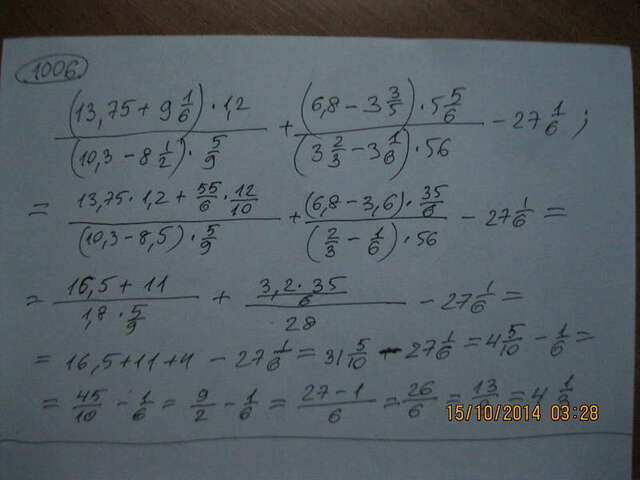 1006
(13,75 + 9 1/6) · 1,2 / (10,3 - 8 1/2) · 5/9 + (6,8 - 3 3/5) · 5 5/6 / (3 2/3 - 3 1/6) · 56 - 27 1/6 ;
= 13,75 · 1,2 + 55/6 · 12/10 / (10,3 - 8,5) · 5/9 + (6,8 - 3,6) · 35/6 / (2/3 - 1/6) · 56 - 27 1/6 =
= 16,5 + 11 / 1,8 · 5/9 + 3,2 · 35/6 / 28 - 27 1/6 =
= 16,5 + 11 + 4 - 27 1/6 = 31 5/10 - 27 1/6 = 4 5/10 - 1/6 =
= 45/10 - 1/6 = 9/2 - 1/6 = 27 - 1 / 6 = 26/6 = 13 = 4 1
15/10/2014 03:28